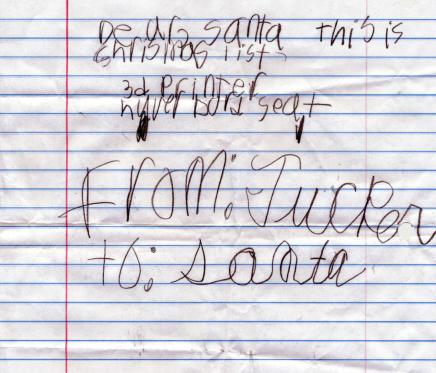 De ur santa this is
christmas list
3d Printer
hyver bord seat
From: Tucker
to: santa